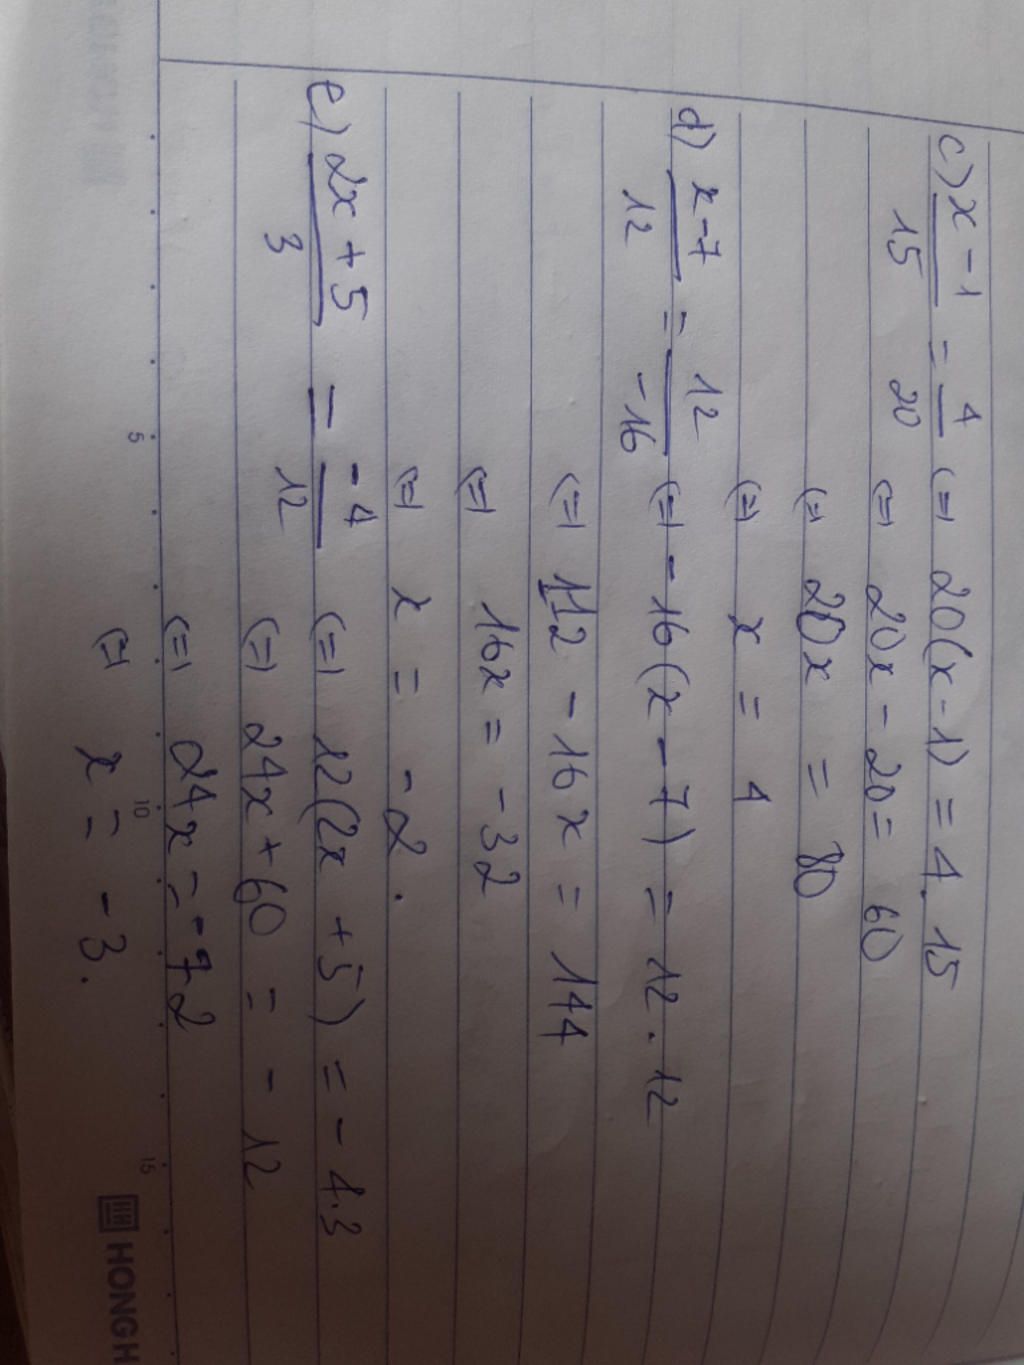 c) x - 1 / 15 = 4 / 20 (=) 20(x - 1) = 4. 15
(=) 20x - 20 = 60
(=) 20x = 80
(=) x = 4
d) x - 7 / 12 = 12 / -16 (=) - 16(x - 7) = 12. 12
(=) 112 - 16x = 144
(=) 16x = - 32
(=) x = - 2.
e) 2x + 5 / 3 = - 4 / 12 (=) 12(2x + 5) = - 4.3
(=) 24x + 60 = - 12
(=) 24x = - 72
(=) x = - 3.
5 10 15
HONG H